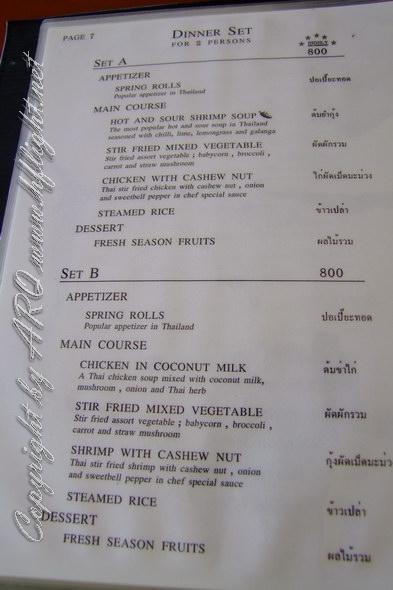 PAGE 7
DINNER SET
FOR 2 PERSONS
SET A 800
APPETIZER
SPRING ROLLS ปอเปี๊ยะทอด
Popular appetizer in Thailand
MAIN COURSE
HOT AND SOUR SHRIMP SOUP ต้มยำกุ้ง
The most popular hot and sour soup in Thailand
seasoned with chilli, lime, lemongrass and galanga
STIR FRIED MIXED VEGETABLE ผัดผักรวม
Stir fried assort vegetable ; babycorn , broccoli ,
carrot and straw mushroom
CHICKEN WITH CASHEW NUT ไก่ผัดเม็ดมะม่วง
Thai stir fried chicken with cashew nut , onion
and sweetbell pepper in chef special sauce
STEAMED RICE ข้าวเปล่า
DESSERT
FRESH SEASON FRUITS ผลไม้รวม
SET B 800
APPETIZER
SPRING ROLLS ปอเปี๊ยะทอด
Popular appetizer in Thailand
MAIN COURSE
CHICKEN IN COCONUT MILK ต้มข่าไก่
A Thai chicken soup mixed with coconut milk,
mushroom , onion and Thai herb
STIR FRIED MIXED VEGETABLE ผัดผักรวม
Stir fried assort vegetable ; babycorn , broccoli ,
carrot and straw mushroom
SHRIMP WITH CASHEW NUT กุ้งผัดเม็ดมะม่ว
Thai stir fried shrimp with cashew nut , onion
and sweetbell pepper in chef special sauce
STEAMED RICE ข้าวเปล่า
DESSERT
FRESH SEASON FRUITS ผลไม้รวม
Copyright by ARO www.hflight.net